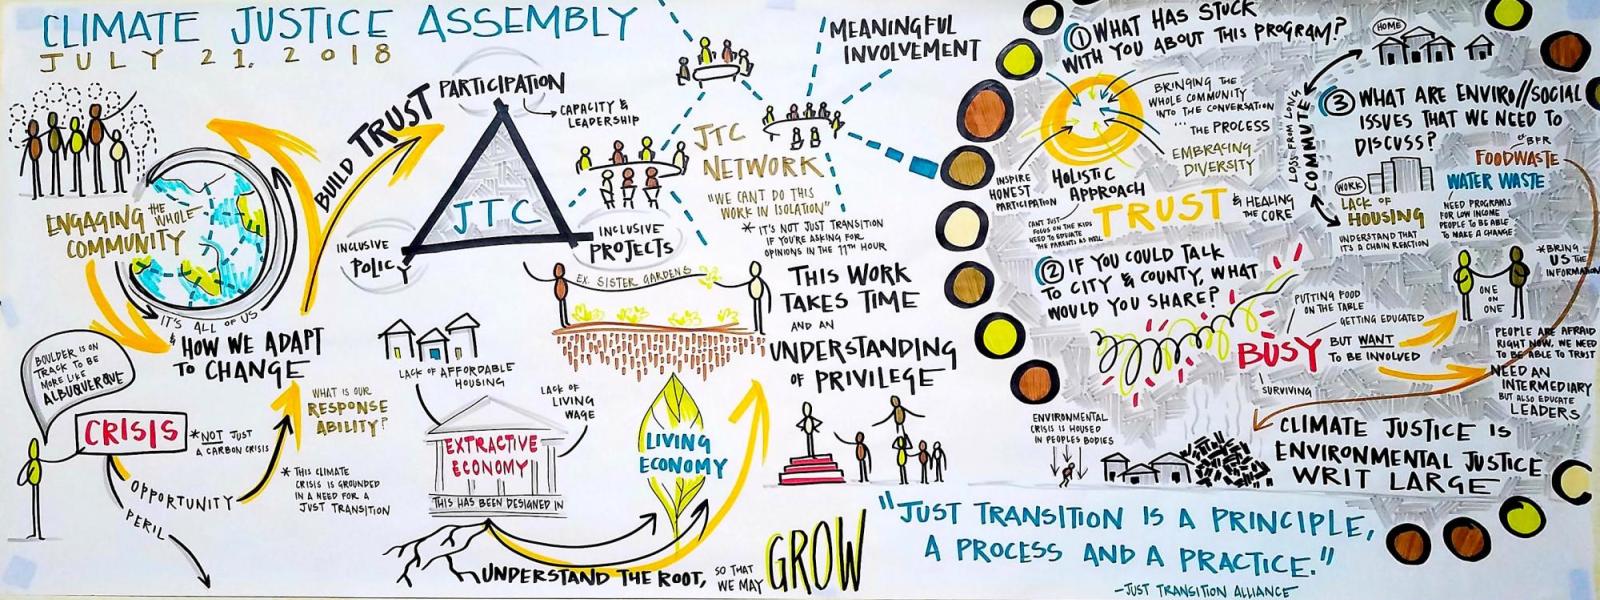 CLIMATE JUSTICE ASSEMBLY
JULY 21, 2018
ENGAGING THE WHOLE
COMMUNITY
IT'S ALL OF US
& HOW WE ADAPT
TO CHANGE
BOULDER IS ON
TRACK TO BE
MORE LIKE
ALBUQUERQUE
CRISIS
*NOT JUST
A CARBON CRISIS
OPPORTUNITY
PERIL
* THIS CLIMATE
CRISIS IS GROUNDED
IN A NEED FOR A
JUST TRANSITION
WHAT IS OUR
RESPONSE
ABILITY?
BUILD TRUST
PARTICIPATION
CAPACITY &
LEADERSHIP
JTC
INCLUSIVE
POLICY
INCLUSIVE
PROJECTS
EX. SISTER GARDENS
LACK OF AFFORDABLE
HOUSING
LACK OF
LIVING
WAGE
EXTRACTIVE
ECONOMY
THIS HAS BEEN DESIGNED IN
LIVING
ECONOMY
UNDERSTAND THE ROOT,
SO THAT
WE MAY
GROW
MEANINGFUL
INVOLVEMENT
JTC
NETWORK
"WE CAN'T DO THIS
WORK IN ISOLATION"
* IT'S NOT JUST TRANSITION
IF YOU'RE ASKING FOR
OPINIONS IN THE 11TH HOUR
THIS WORK
TAKES TIME
AND AN
UNDERSTANDING
OF PRIVILEGE
"JUST TRANSITION IS A PRINCIPLE,
A PROCESS AND A PRACTICE."
-JUST TRANSITION ALLIANCE
① WHAT HAS STUCK
WITH YOU ABOUT THIS PROGRAM?
BRINGING THE
WHOLE COMMUNITY
INTO THE CONVERSATION
... THE PROCESS
EMBRACING
DIVERSITY
INSPIRE
HONEST
PARTICIPATION
HOLISTIC
APPROACH
CAN'T JUST
FOCUS ON THE KIDS
NEED TO EDUCATE
THE PARENTS AS WELL
TRUST
& HEALING
THE CORE
② IF YOU COULD TALK
TO CITY & COUNTY, WHAT
WOULD YOU SHARE?
BUSY
PUTTING FOOD
ON THE TABLE
GETTING EDUCATED
BUT WANT
TO BE INVOLVED
SURVIVING
ENVIRONMENTAL
CRISIS IS HOUSED
IN PEOPLES BODIES
HOME
LOSS FROM LONG
COMMUTE
WORK
LACK OF
HOUSING
UNDERSTAND THAT
IT'S A CHAIN REACTION
③ WHAT ARE ENVIRO//SOCIAL
ISSUES THAT WE NEED TO
DISCUSS?
BPR
FOODWASTE
WATER WASTE
NEED PROGRAMS
FOR LOW INCOME
PEOPLE TO BE ABLE
TO MAKE A CHANGE
*BRING
US THE
INFORMATION
ONE
ON
ONE
PEOPLE ARE AFRAID
RIGHT NOW, WE NEED
TO BE ABLE TO TRUST
NEED AN
INTERMEDIARY
BUT ALSO EDUCATE
LEADERS
CLIMATE JUSTICE IS
ENVIRONMENTAL JUSTICE
WRIT LARGE